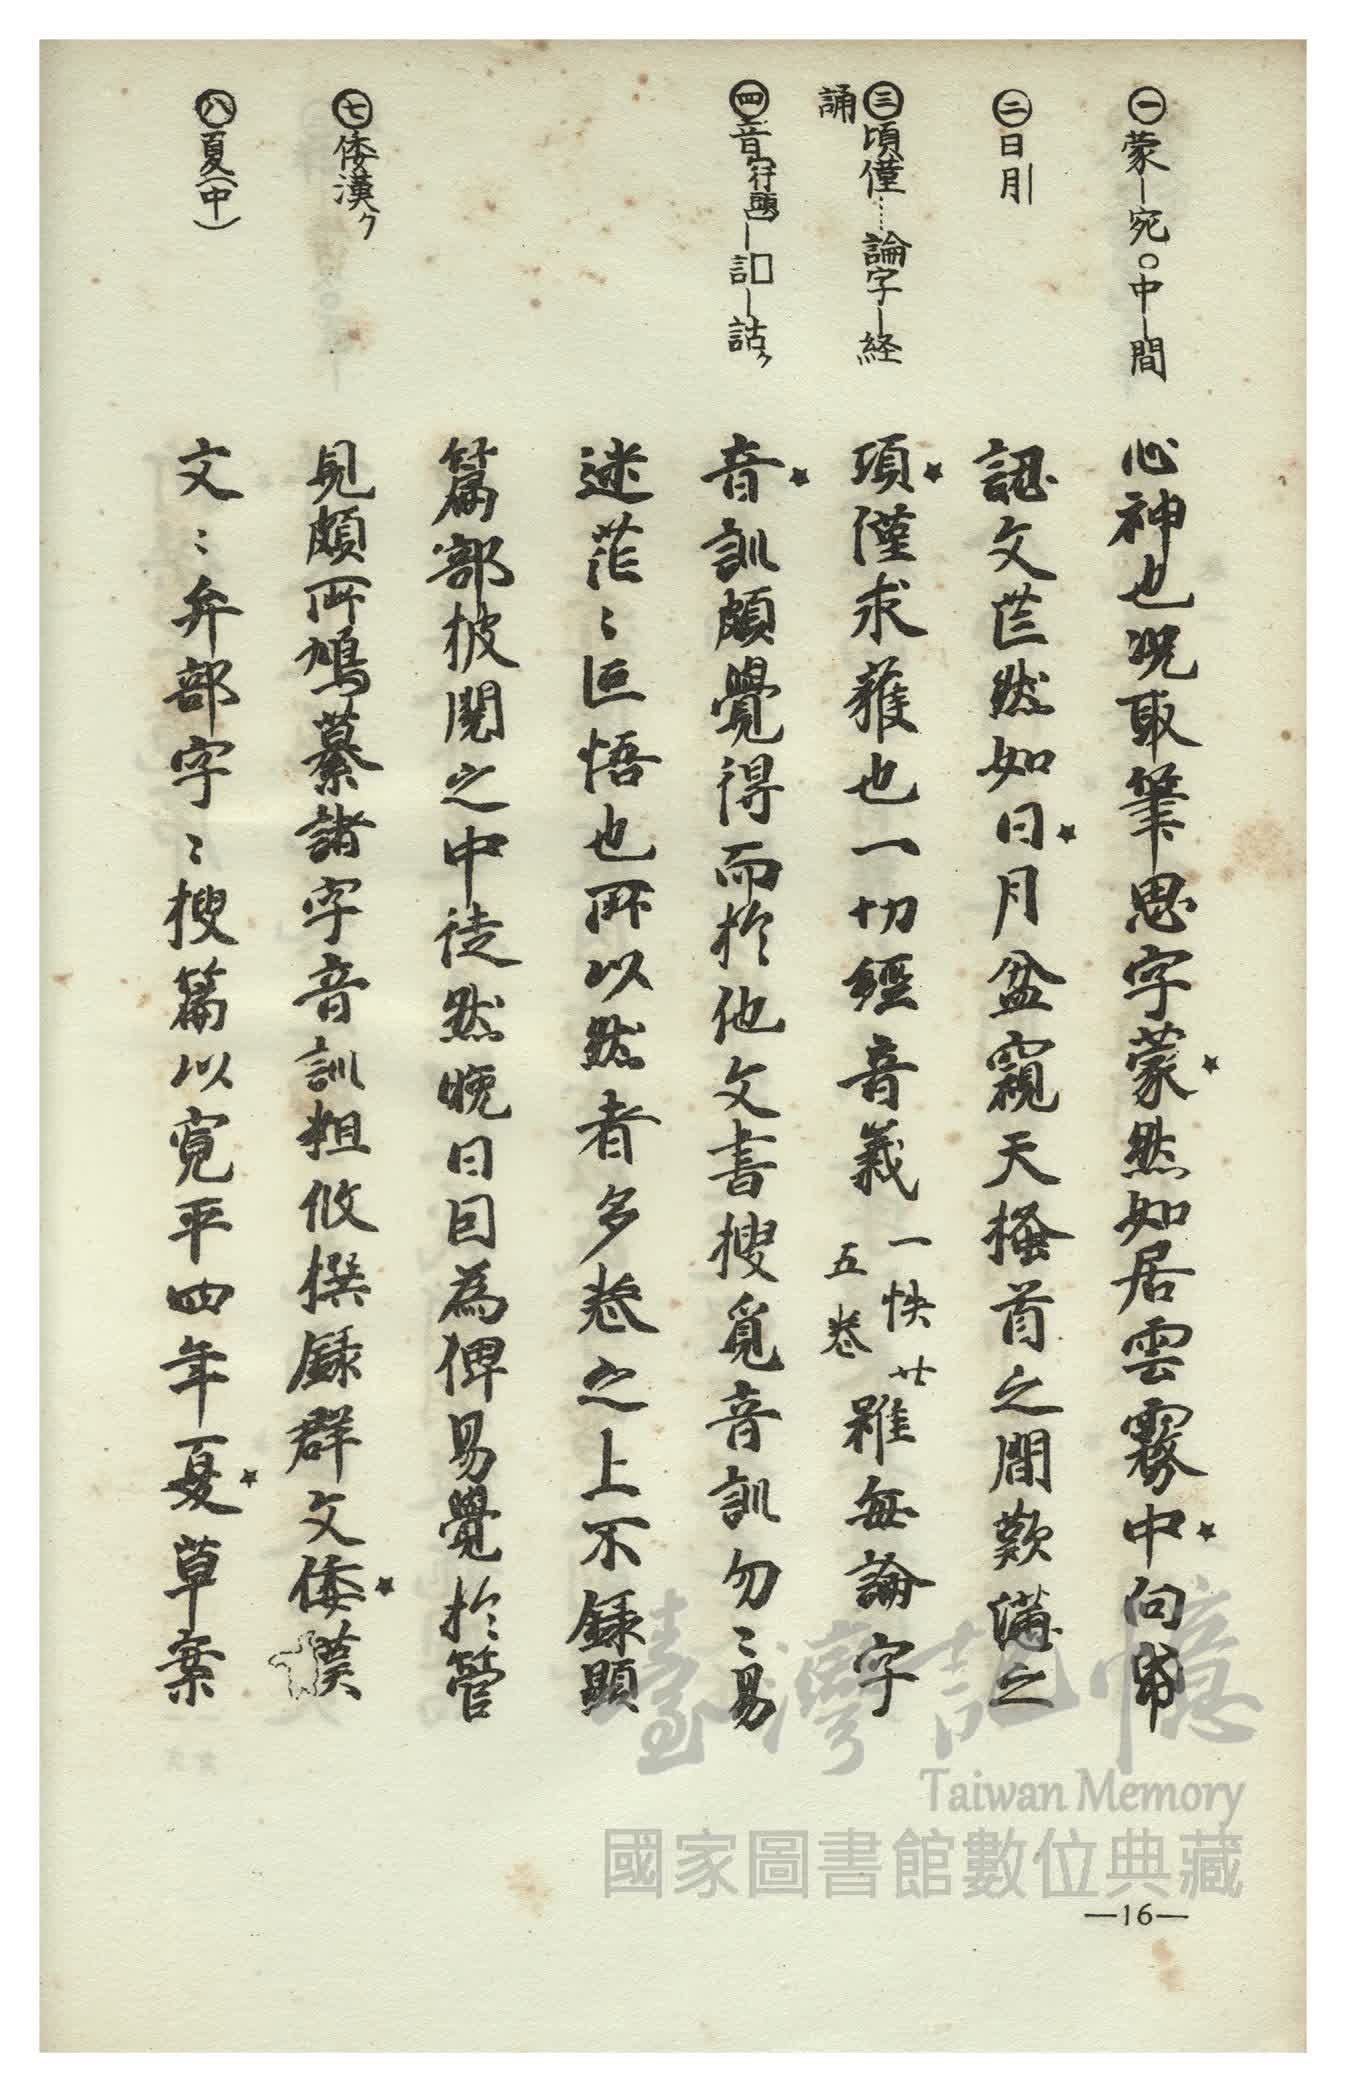 ㊀蒙―宛○中―間
㊁日月
㊂頃僅……論字―経
誦
㊃音(行頭)―訁□―詁〃
㊆倭漢〃
㊇夏(中)
心神也況取筆思字蒙然如居雲霧中向帋
認文茫然如日月盆窺天搔首之間歎懣之
頃僅求獲也一切經音義一帙廿五巻雖每論字
音訓頗覺得而於他文書搜覓音訓勿〻易
迷茫〻叵悟也所以然者多巻之上不錄顯
篇部披閱之中徒然晩日因為俾易覺於管
見頗所鳩纂諸字音訓粗攸撰錄群文倭漢
文〻弁部字〻搜篇以寛平四年夏草案
臺灣記憶
Taiwan Memory
國家圖書館數位典藏
—16—